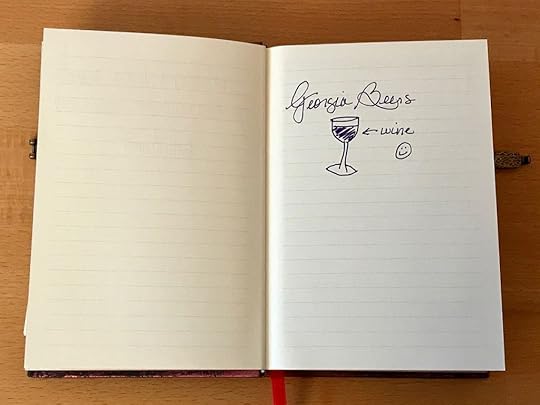 Georgia Beers
← wine